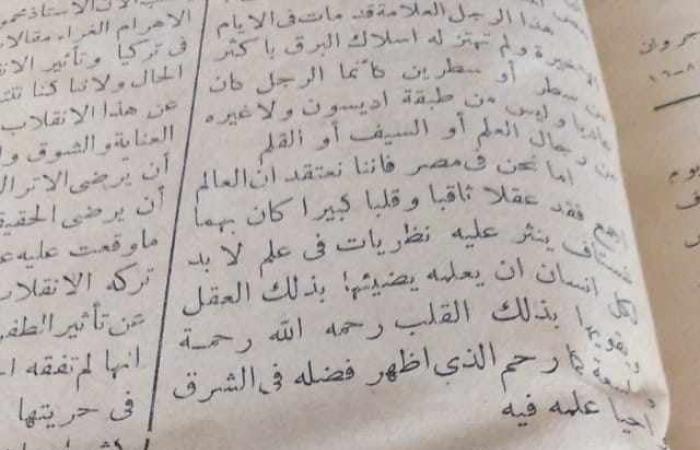 هذا الرجل العلامة قد مات في الايام
الاخيرة ولم تهتز له اسلاك البرق باكثر
من سطر أو سطرين كأنما الرجل كان
عاديا وليس من طبقة اديسون ولا غيره
من رجال العلم أو السيف أو القلم
اما نحن في مصر فاننا نعتقد ان العالم
اجمع فقد عقلا ثاقبا وقلبا كبيرا كان بهما
ينثر عليه نظريات في علم لا بد
لكل انسان ان يعلمه يضيئها بذلك العقل
ويقويها بذلك القلب رحمه الله رحمة
واسعة كما رحم الذي اظهر فضله في الشرق
احيا علمه فيه
الاستاذ
الاهرام الغراء مقالا
في تركيا وتأثير
الحال ولاننا كنا
عن هذا الانقلاب
العناية والشوق
أن يرضى الاترا
أن يرضى الحقيقة
ما وقعت عليه
تركه الانقلاب
عن تأثير
انها لم تفقه
في حريتها